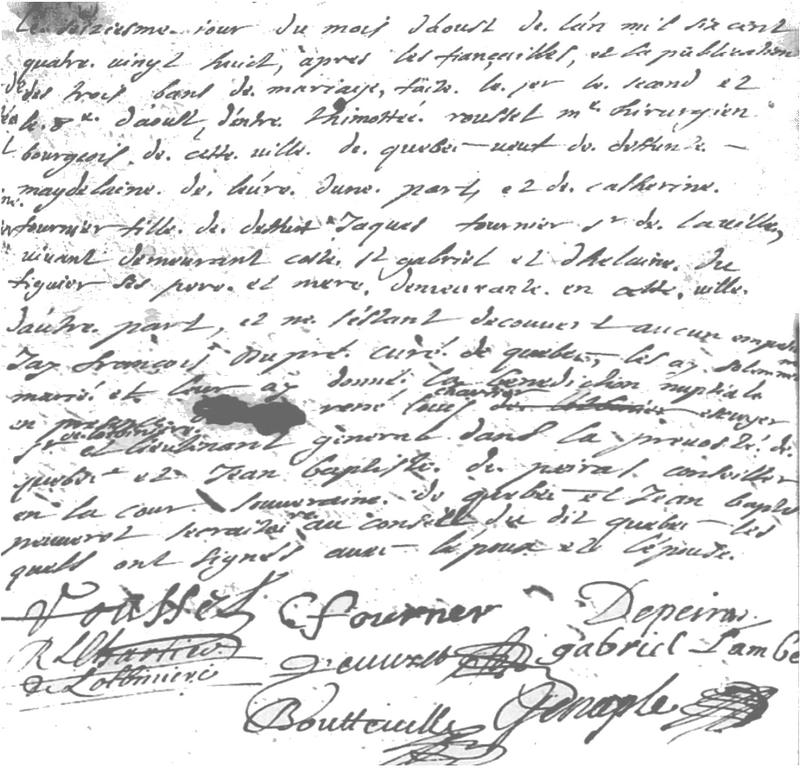 le seiziesme jour du mois daoust de lan mil six cent
quatre vingt huict, apres les fiançailles, et la publication
des trois bans de mariage, faite le jer le second et
le 8e daoust, dentre Thimottée roussel mtre chirurgien
bourgeois de cette ville de quebec veuf de deffunte
magdelaine de leure dune part, et de catherine
fournier fille de deffunt Jaques fournier sr de laville,
vivant demeurant coste st gabriel et dhelaine du
figuier ses pere et mere, demeurante en cette ville
dautre part, et ne sestant decouvert aucun
Jay françois dupré curé de quebec, les ay
marié et leur ay donné la benediction nuptiale
chartier
en presence rené louis de escuyer
de lotbiniere
sr et lieutenant general dans la prevosté de
quebec et Jean baptiste de peiras conseiller
en la cour souveraine de quebec et Jean
peuveret secraitaire au conseil du dit quebec les
quels ont signés avec lepoux et lépouse.
Roussel Cfournier Depeiras
RLChartier gabriel Lambe
de Lotbiniere peuvret
Boutteuille Genaple